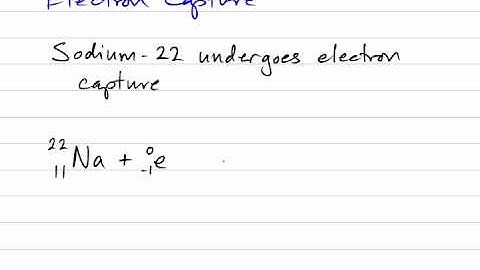 Electron Capture
Sodium-22 undergoes electron
capture
²²₁₁Na + ⁰₋₁e